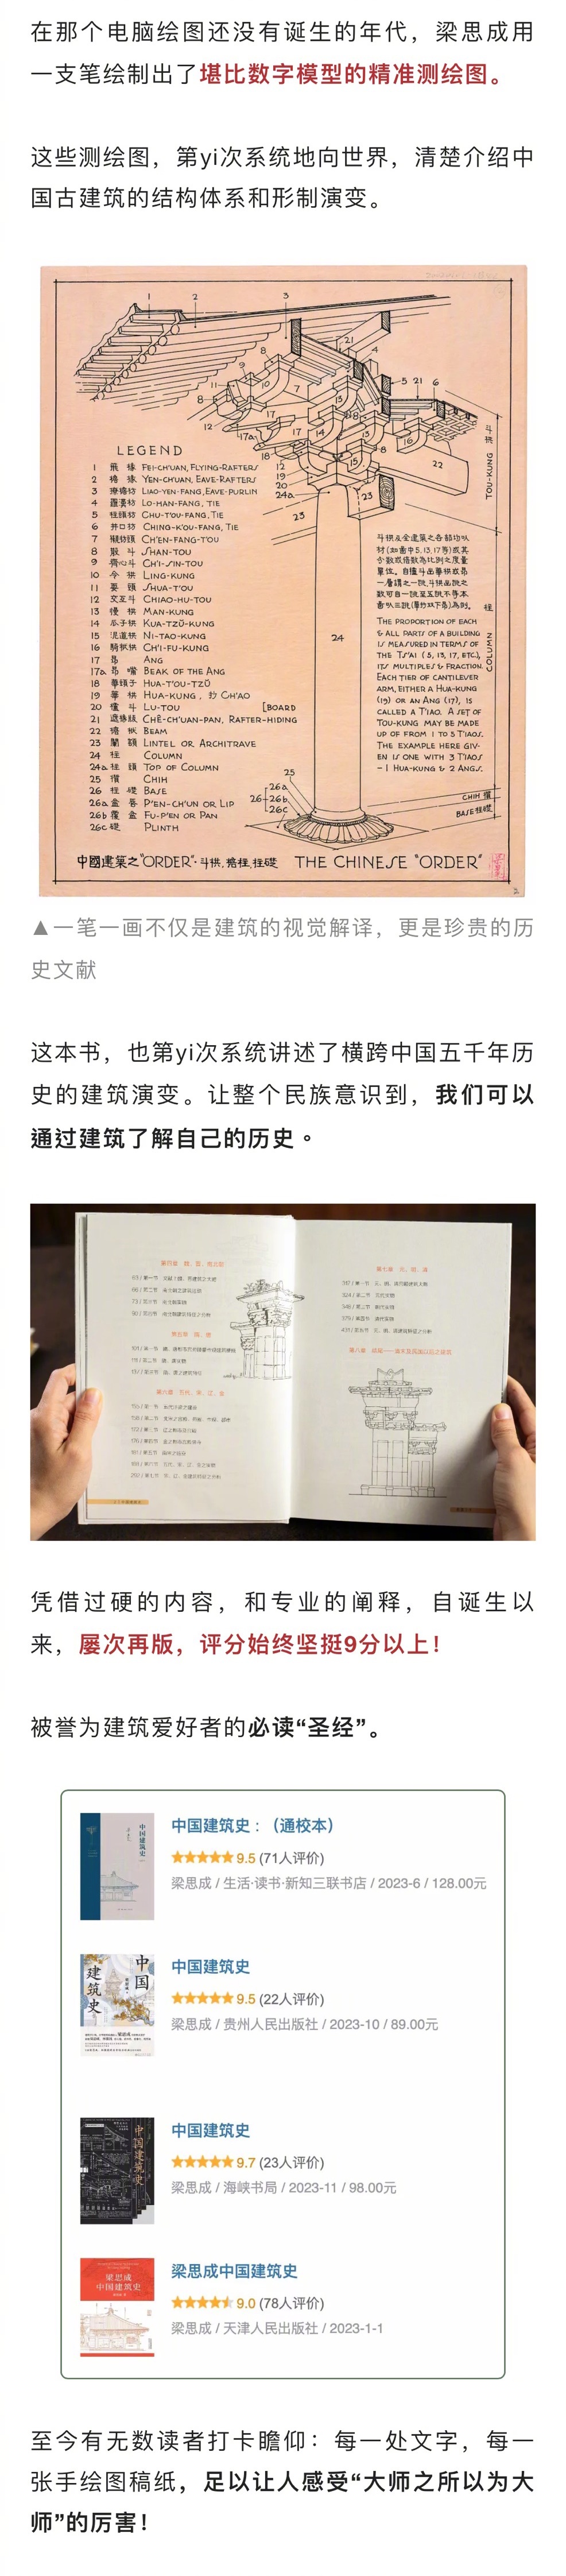 在那个电脑绘图还没有诞生的年代，梁思成用
一支笔绘制出了堪比数字模型的精准测绘图。
这些测绘图，第yi次系统地向世界，清楚介绍中
国古建筑的结构体系和形制演变。
LEGEND
1 飛椽 FEI-CH'UAN, FLYING-RAFTERS
2 檐椽 YEN-CH'UAN, EAVE-RAFTERS
3 橑檐枋 LIAO-YEN-FANG, EAVE-PURLIN
4 羅漢枋 LO-HAN-FANG, TIE
5 柱頭枋 CHU-T'OU-FANG, TIE
6 井口枋 CHING-K'OU-FANG, TIE
7 襯枋頭 CH'EN-FANG-T'OU
8 散斗 SHAN-TOU
9 齊心斗 CH'I-SIN-TOU
10 令栱 LING-KUNG
11 耍頭 SHUA-T'OU
12 交互斗 CHIAO-HU-TOU
13 慢栱 MAN-KUNG
14 瓜子栱 KUA-TZŬ-KUNG
15 泥道栱 NI-TAO-KUNG
16 騎栿栱 CH'I-FU-KUNG
17 昂 ANG
17a 昂嘴 BEAK OF THE ANG
18 華頭子 HUA-T'OU-TZŬ
19 華栱 HUA-KUNG, 抄 CH'AO
20 櫨斗 LU-TOU [BOARD
21 遮椽版 CHÊ-CH'UAN-PAN, RAFTER-HIDING
22 BEAM
23 闌額 LINTEL OR ARCHITRAVE
24 柱 COLUMN
24a 柱頭 TOP OF COLUMN
25 櫍 CHIH
26 柱礎 BASE
26a 盆唇 P'EN-CH'UN OR LIP
26b 覆盆 FU-P'EN OR PAN
26c 礎 PLINTH
斗栱 TOU-KUNG
柱 COLUMN
CHIH 櫍
BASE 柱礎
斗栱及全建築之各部均以
材(如圖中5,13,17等)或其
分數或倍數為比例之度量
單位。
THE PROPORTION OF EACH
& ALL PARTS OF A BUILDING
IS MEASURED IN TERMS OF
THE TS'AI (5, 13, 17, ETC.),
ITS MULTIPLES & FRACTION.
EACH TIER OF CANTILEVER
ARM, EITHER A HUA-KUNG
(19) OR AN ANG (17), IS
CALLED A T'IAO. A SET OF
TOU-KUNG MAY BE MADE
UP OF FROM 1 TO 5 T'IAOS.
THE EXAMPLE HERE GIV-
EN IS ONE WITH 3 T'IAOS
-1 HUA-KUNG & 2 ANGS.
中國建築之"ORDER"·斗栱,檐柱,柱礎 THE CHINESE "ORDER"
▲一笔一画不仅是建筑的视觉解译，更是珍贵的历
史文献
这本书，也第yi次系统讲述了横跨中国五千年历
史的建筑演变。让整个民族意识到，我们可以
通过建筑了解自己的历史。
第七章 元、明、清
凭借过硬的内容，和专业的阐释，自诞生以
来，屡次再版，评分始终坚挺9分以上！
被誉为建筑爱好者的必读“圣经”。
中国建筑史
中国建筑史：（通校本）
9.5 (71人评价)
梁思成 / 生活·读书·新知三联书店 / 2023-6 / 128.00元
中国
建筑史
中国建筑史
9.5 (22人评价)
梁思成 / 贵州人民出版社 / 2023-10 / 89.00元
中国建筑史
中国建筑史
9.7 (23人评价)
梁思成 / 海峡书局 / 2023-11 / 98.00元
梁思成
中国建筑史
梁思成中国建筑史
9.0 (78人评价)
梁思成 / 天津人民出版社 / 2023-1-1
至今有无数读者打卡瞻仰：每一处文字，每一
张手绘图稿纸，足以让人感受“大师之所以为大
师”的厉害！